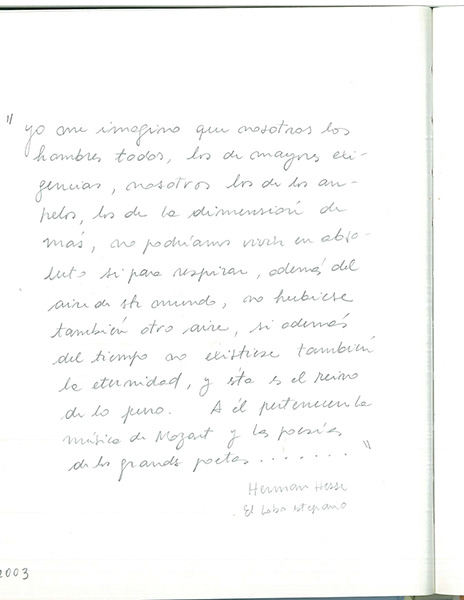 "yo me imagino que nosotros los
hombres todos, los de mayores exi-
gencias, nosotros los de los an-
helos, los de la dimensión de
más, no podríamos vivir en abso-
luto si para respirar, además del
aire de este mundo, no hubiese
también otro aire, si además
del tiempo no existiese también
la eternidad, y ésta es el reino
de lo puro. A él pertenecen la
música de Mozart y las poesías
de los grandes poetas . . . . . . . "
Herman Hesse
El lobo estepario
2003